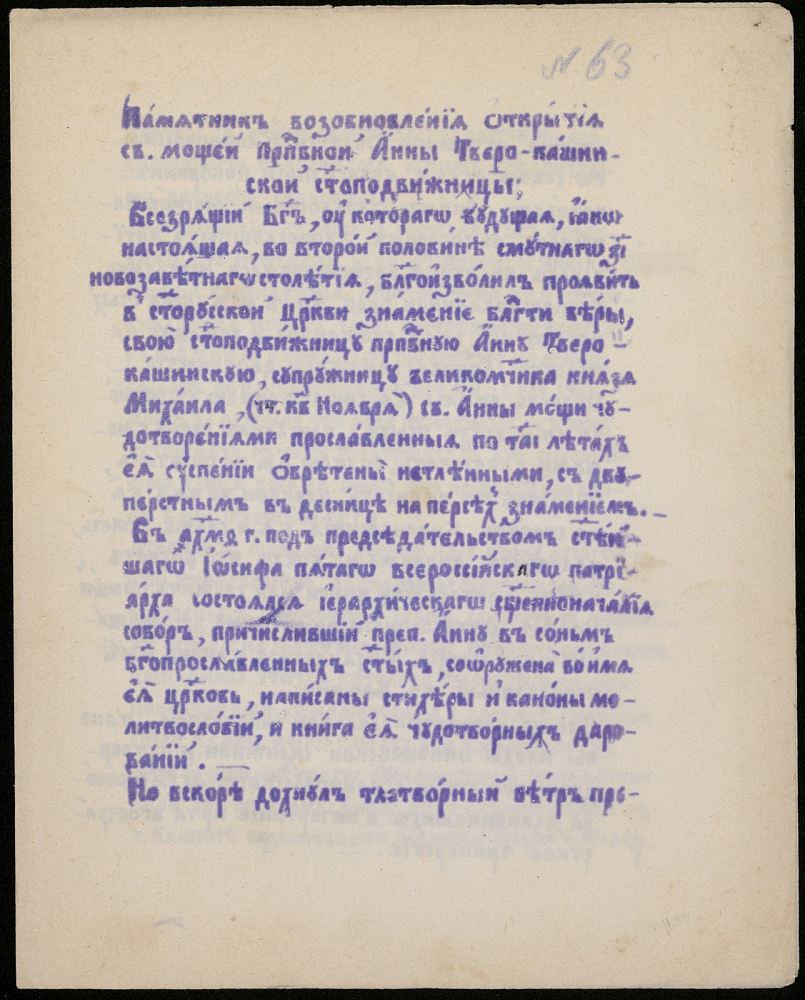 N 63
Па́мѧтникъ возобновле́нїѧ ѿткры́тїѧ
св. моще́й прпⷣбной А҆́нны Тверо-каши́н-
ской ст҃оподви́жницы.
Всезрѧ́щїй Бг҃ъ, оу҆ кото́рагѡ бу́дущаѧ, ꙗ҆́кѡ
настоѧ́щаѧ, во второ́й полови́нѣ сму́тнагѡ з҃і
новозавѣ́тнагѡ столѣ́тїѧ, бл҃гоизво́лилъ проѧви́ть
в ст҃ору́сской Цр҃кви зна́менїе бл҃гти вѣ́ры,
свою̀ ст҃оподви́жницу прпⷣбную А҆́нну Тверо-
ка́шинскую, супру́жницу великомч҃ника кнѧ́зѧ
Миха́ила, (чт. кв҃ Ноѧбрѧ̀) св. А҆́нны мо́щи чу-
дотворе́нїѧми просла́вленныѧ по та҃і лѣ́тахъ
є҆ѧ̀ оу҆спе́нїи ѡ҆брѣ́тены нетлѣ́нными, съ дву-
пе́рстнымъ въ десни́цѣ на пе́рсѣхъ зна́менїемъ.
Въ ахм҃ѳ г. подъ предсѣда́тельствомъ ст҃ѣй-
шагѡ І҆ѡ́сифа пѧ́тагѡ всеросси́йскагѡ патрї-
а́рха состоѧ́лсѧ і҆ерархи́ческагѡ сщ҃енноначалїѧ
собо́ръ, причи́слившїй преп. А҆́нну въ со́ньмъ
бг҃опросла́вленныхъ ст҃ы́хъ, соѡружена̀ во и҆́мѧ
є҆ѧ̀ цр҃ковь, напи́саны стихѣ́ры и҆ кано́ны мо-
литвосло́вїй, и҆ кни́га є҆ѧ̀ чудотво́рныхъ даро-
ва́нїй.
Но вско́рѣ дохну́лъ тлетво́рный вѣ́тръ пре-